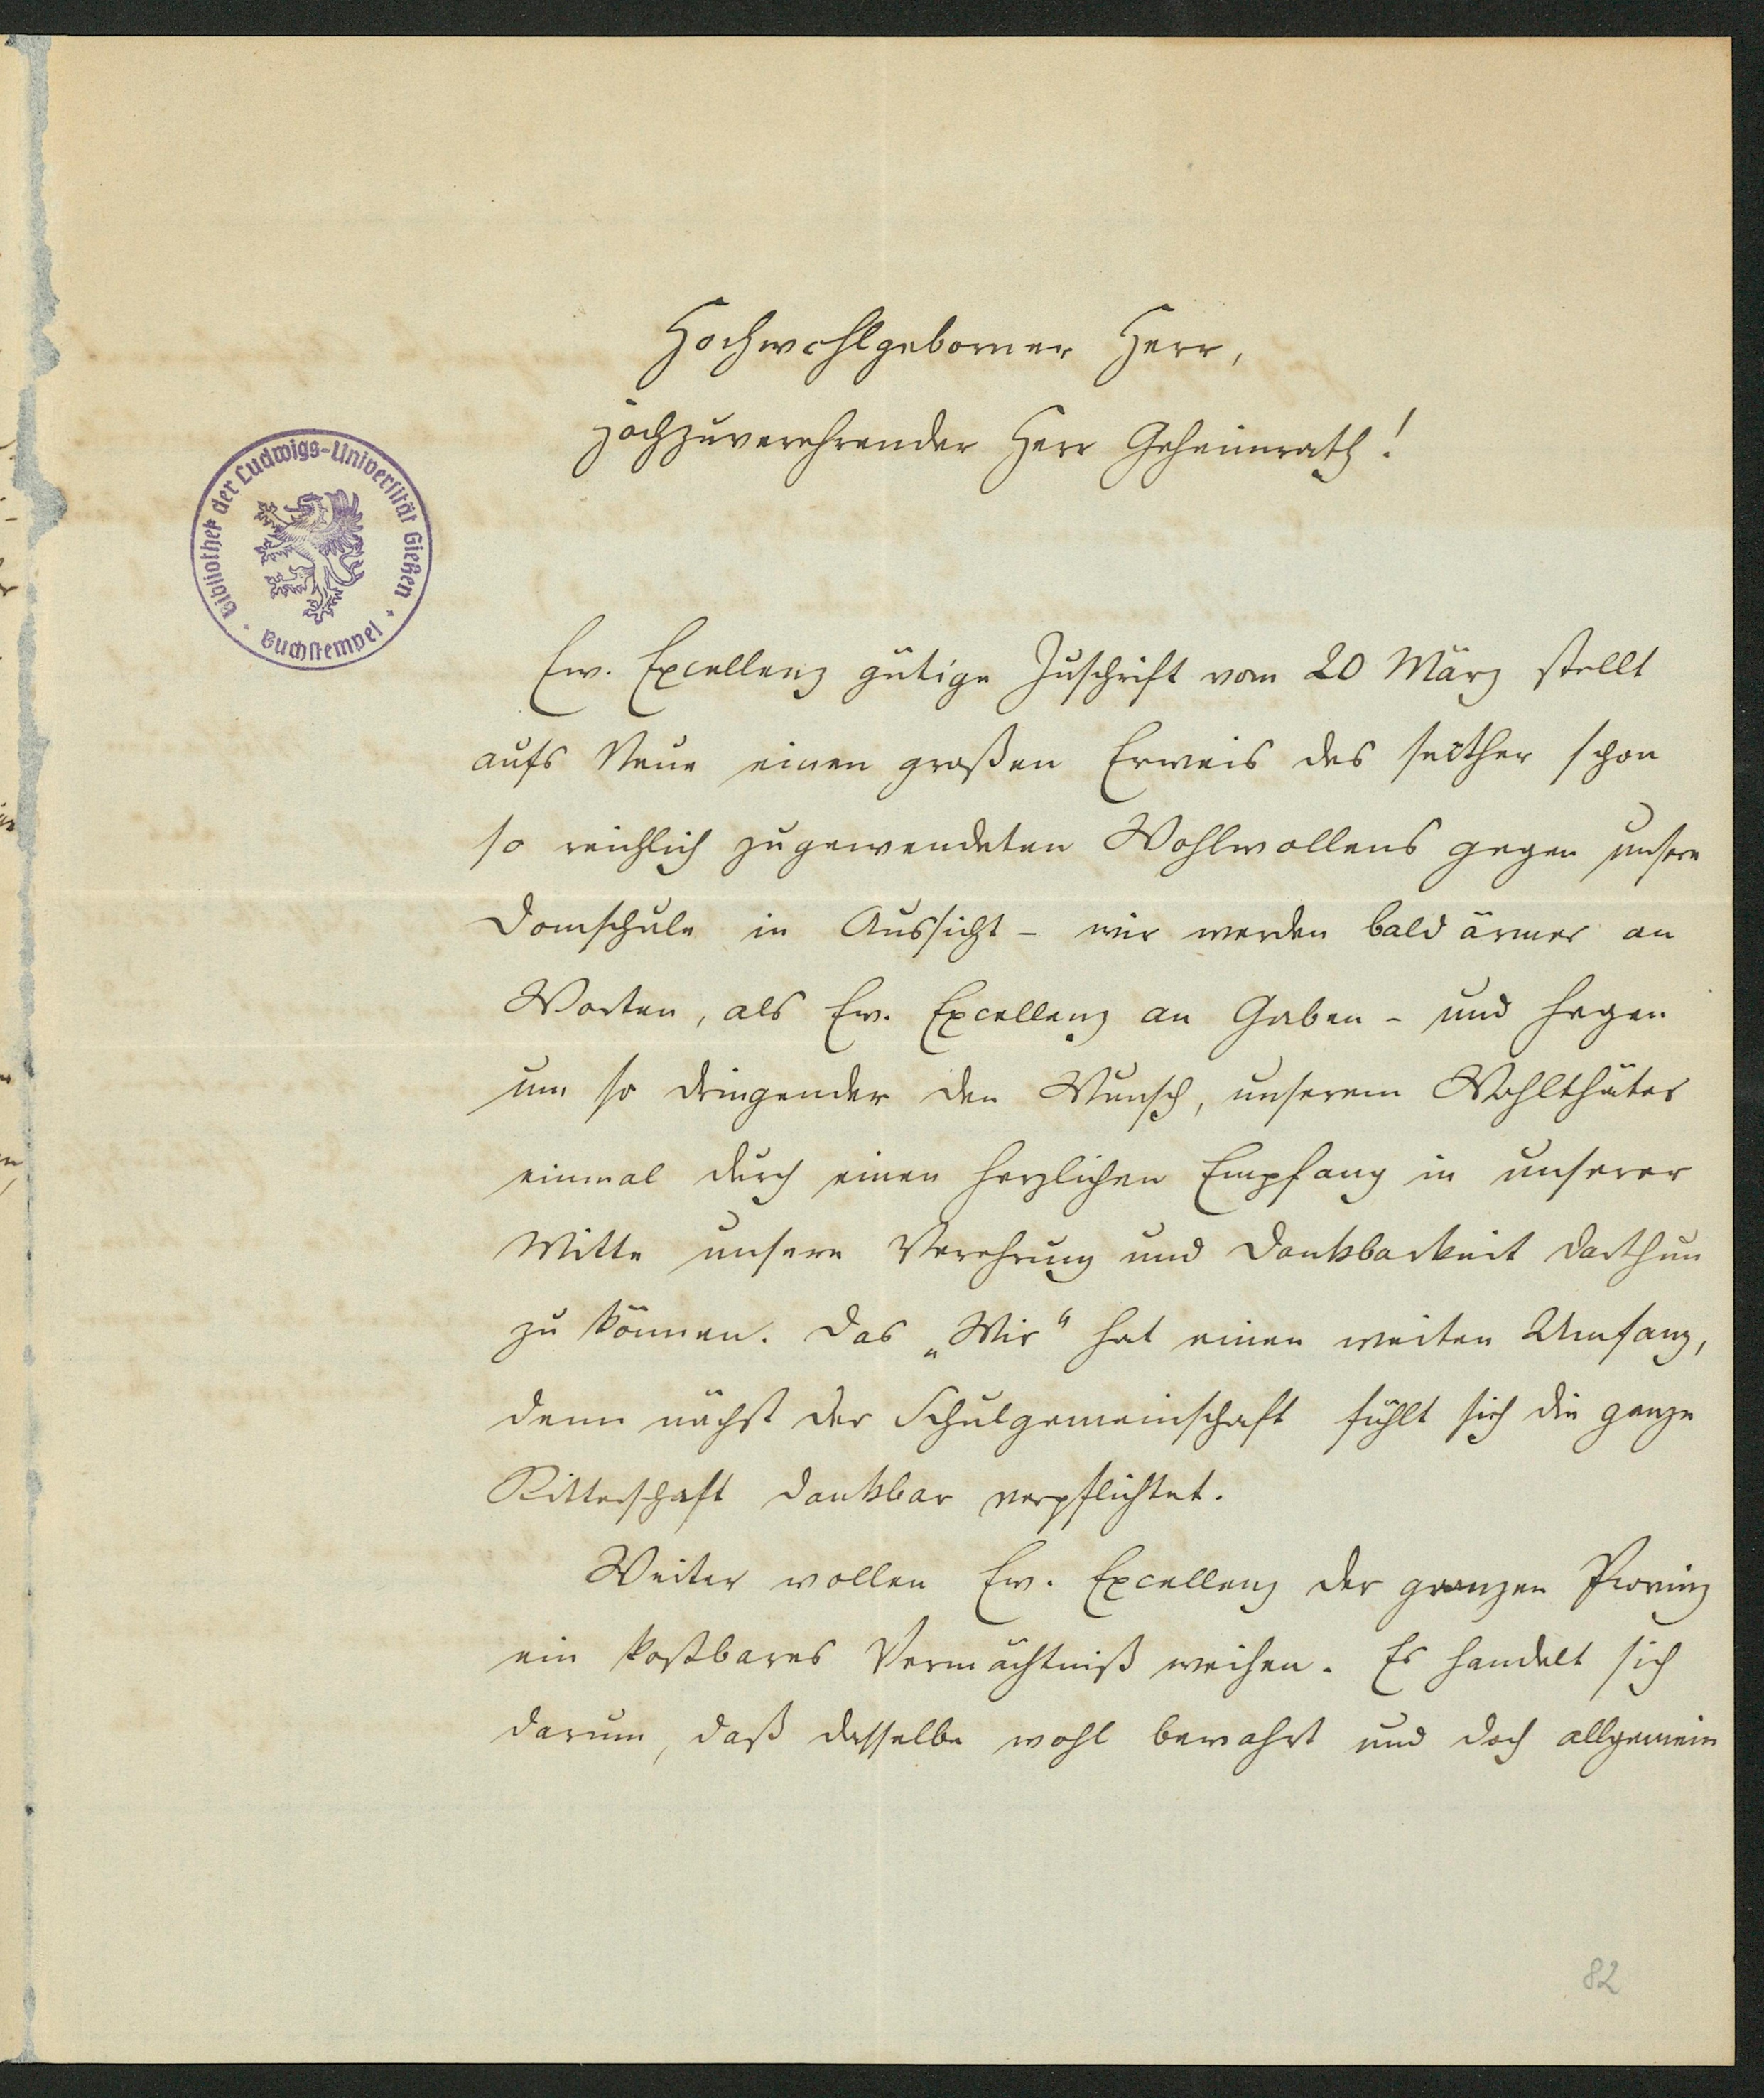 Hochwohlgeborner Herr,
hochzuverehrender Herr Geheimrath!
Bibliothek der Ludwigs-Universität Gießen
Buchstempel
Ew. Excellenz gütige Zuschrift vom 20 März stellt
aufs Neue einen großen Erweis des seither schon
so reichlich zugewendeten Wohlwollens gegen unsere
Domschule in Aussicht – wir werden bald ärmer an
Worten, als Ew. Excellenz an Gaben – und hegen
um so dringender den Wunsch, unserem Wohlthäter
einmal durch einen herzlichen Empfang in unserer
Mitte unsere Verehrung und Dankbarkeit darthun
zu können. Das „Wir“ hat einen weiten Umfang,
denn nächst der Schulgemeinschaft fühlt sich die ganze
Ritterschaft dankbar verpflichtet.
Weiter wollen Ew. Excellenz der ganzen Provinz
ein kostbares Vermächtniß weihen. Es handelt sich
darum, daß dasselbe wohl bewahrt und doch allgemein
82